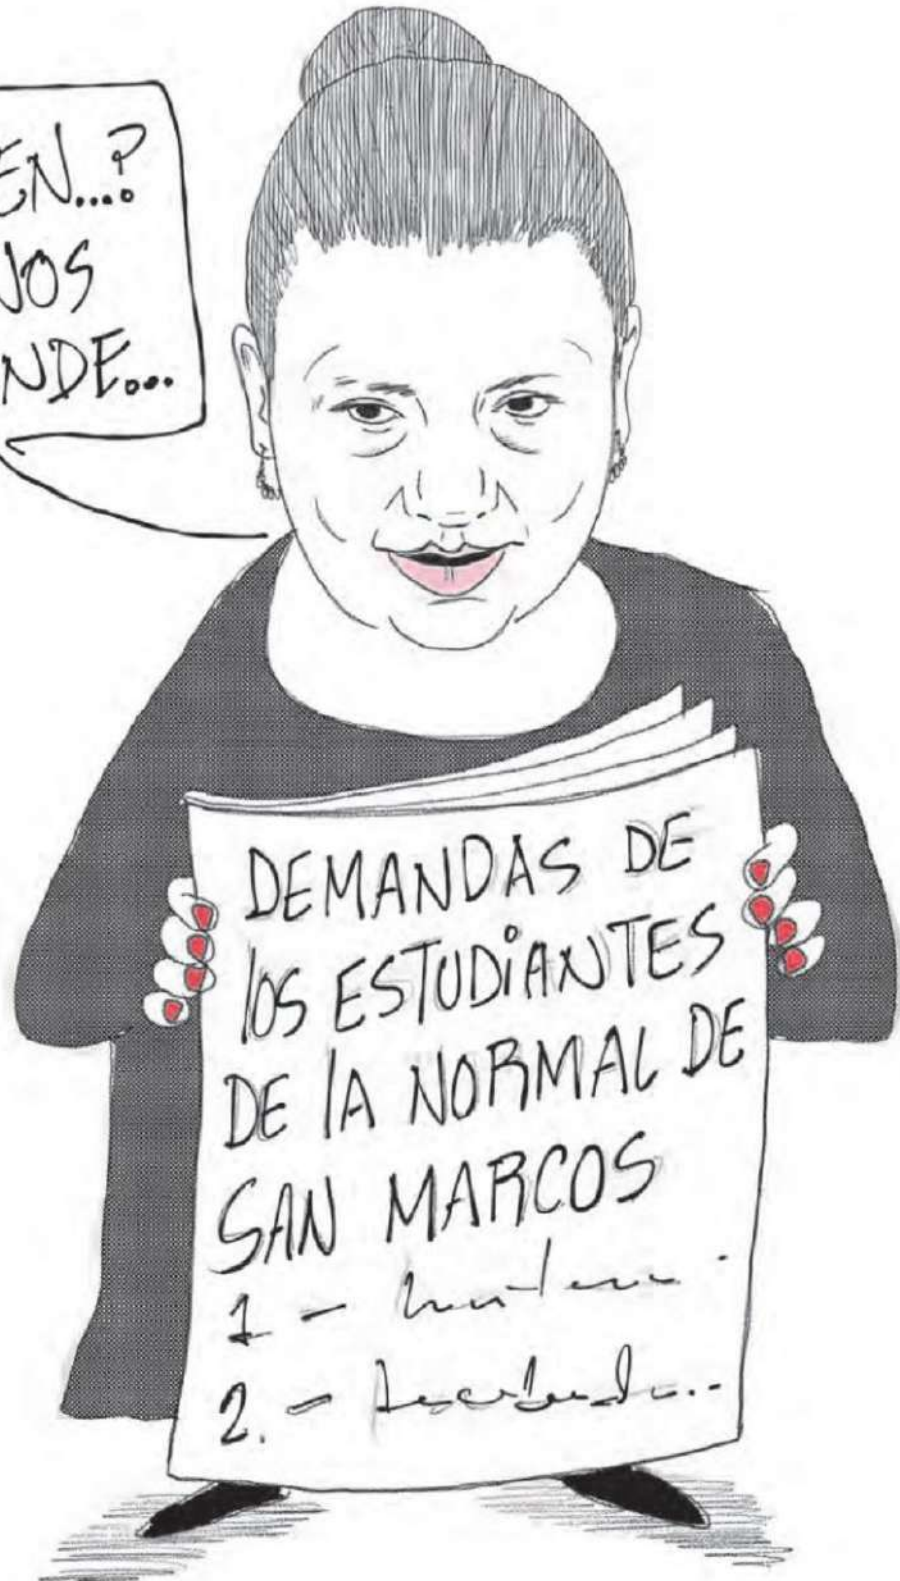 EN...?
NOS
NDE...
DEMANDAS DE
los ESTUDIANTES
DE lA NORMAL DE
SAN MARCOS
1 -
2. -